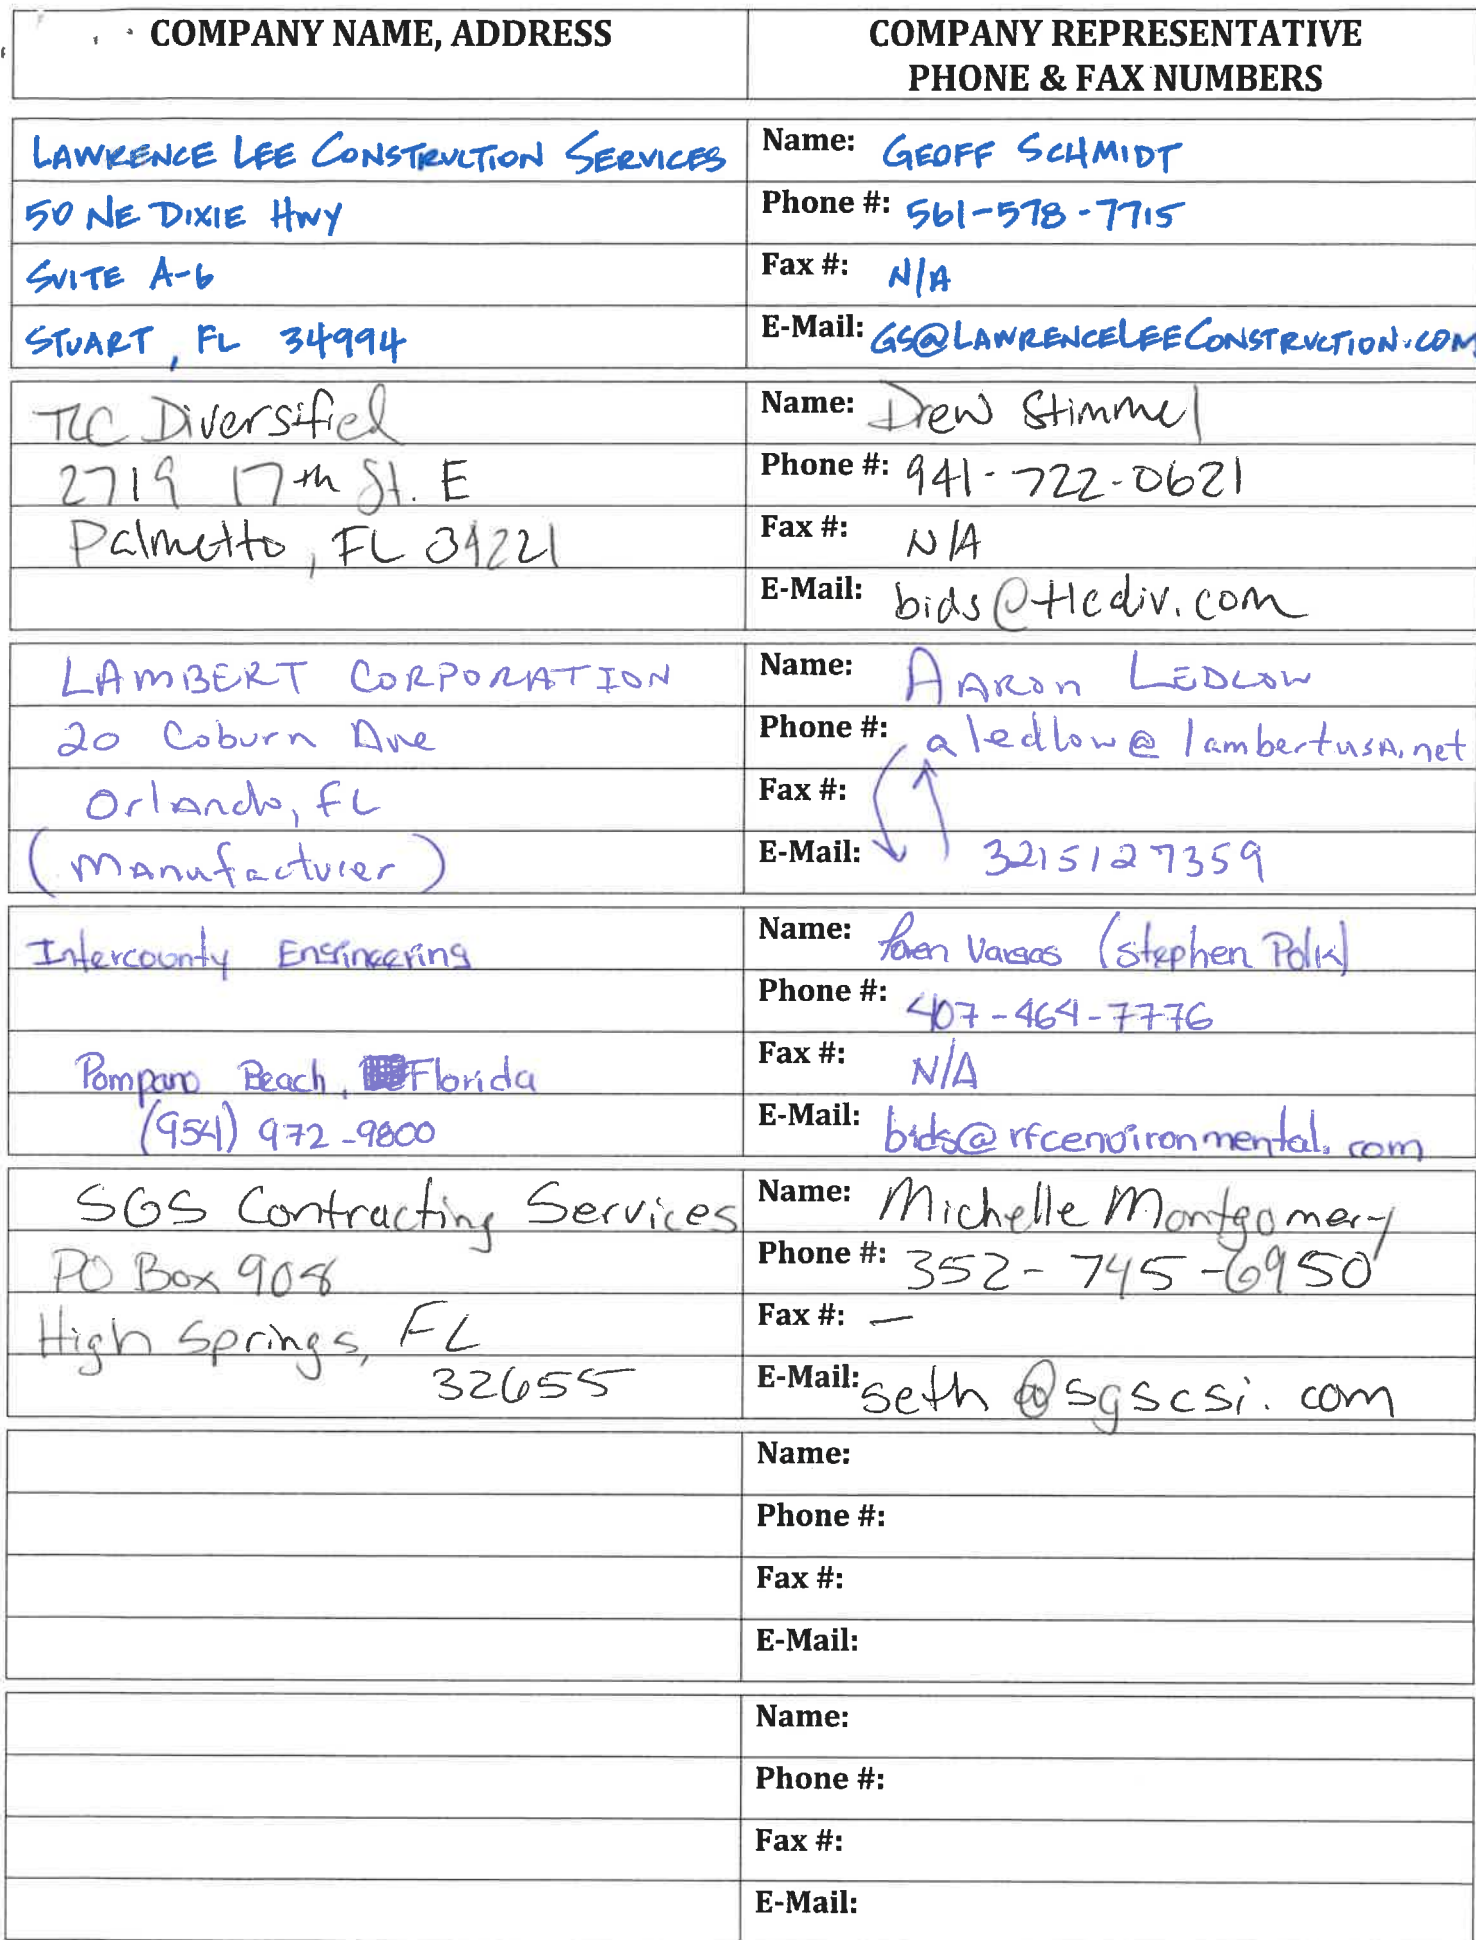 COMPANY NAME, ADDRESS
COMPANY REPRESENTATIVE
PHONE & FAX NUMBERS
LAWRENCE LEE CONSTRUCTION SERVICES
Name: GEOFF SCHMIDT
50 NE DIXIE HWY
Phone #: 561-578-7715
SUITE A-6
Fax #: N/A
STUART, FL 34994
E-Mail: GS@LAWRENCELEECONSTRUCTION.COM
TLC Diversified
Name: Drew Stimmel
2719 17th St. E
Phone #: 941-722-0621
Palmetto, FL 34221
Fax #: N/A
E-Mail: bids@tlcdiv.com
LAMBERT CORPORATION
Name: AARON LEDLOW
20 Coburn Ave
Phone #: aledlow@lambertusA.net
Orlando, FL
Fax #:
(Manufacturer)
E-Mail: 3215127359
Intercounty Engineering
Name: Vargas (Stephen Polk)
Phone #: 407-464-7776
Pompano Beach, Florida
Fax #: N/A
(954) 972-9800
E-Mail: bids@rfcenvironmental.com
SGS Contracting Services
Name: Michelle Montgomery
PO Box 908
Phone #: 352-745-6950
High Springs, FL
Fax #: —
32655
E-Mail: seth@sgscsi.com
Name:
Phone #:
Fax #:
E-Mail:
Name:
Phone #:
Fax #:
E-Mail: